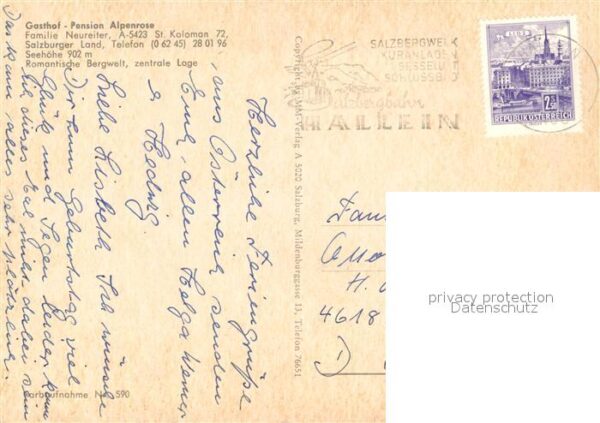 Gasthof - Pension Alpenrose
Familie Neureiter, A-5423 St. Koloman 72,
Salzburger Land, Telefon (0 62 45) 28 01 96
Seehöhe 902 m
Romantische Bergwelt, zentrale Lage
Herzliche Feriengrüße
aus Österreich senden
Euch allen Helga Werner
u. Hedwig.
Liebe Lisbeth Ich wünsche
Dir zum Geburtstag viel
Glück und Segen leider kann
ich dieses Mal nicht dabei sein
Das kann alles sehr
Farbaufnahme Nr. 590
Copyright by MM-Verlag A 5020 Salzburg, Mildenburggasse 13, Telefon 76651
SALZBERGWERK
KURANLAGEN
SESSELLIFT
SCHLOSSBAD
Salzbergbahn
HALLEIN
2.50
REPUBLIK ÖSTERREICH
Fam
H.
4618
D
privacy protection
Datenschutz